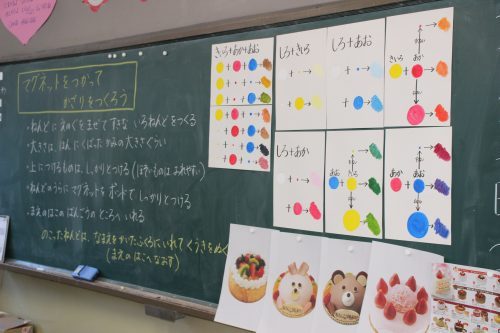 マグネットをつかって
かざりをつくろう
・ねんどにえのぐをまぜてすきな いろねんどをつくる
・大きさは、はんにくばったかみの大きさくらい
・上につけるものは、しっかりとつける(ほそいものは おれやすい)
・ねんどのうらにマグネットをボンドでしっかりとつける
・まえのはこの ばんごうの ところへ いれる
のこったねんどは、なまえをかいたふくろにいれて くうきをぬく
(まえの はこへなおす)
きいろ+あか+あお
しろ+きいろ
しろ+あお
きいろ
あか
しろ+あか
あお
きいろ
あか
あお